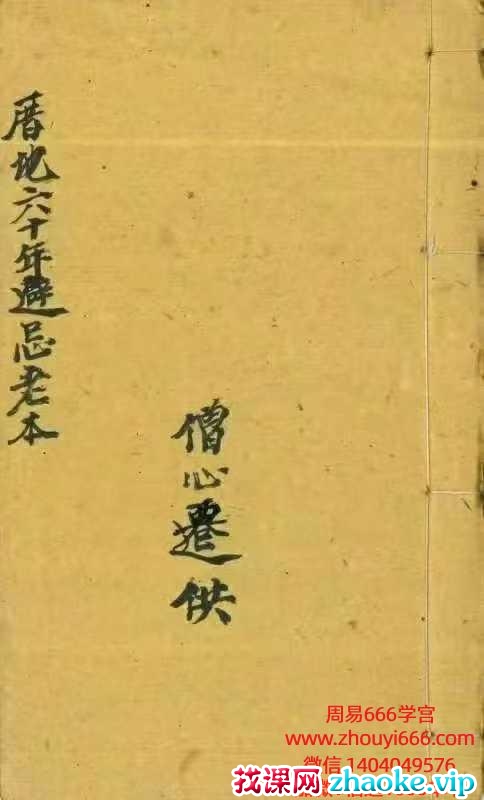 厝地六十年避忌老本
僧心遷供
周易666学宫
www.zhouyi666.com
微信 1404049576
找课网 zhaoke.vip